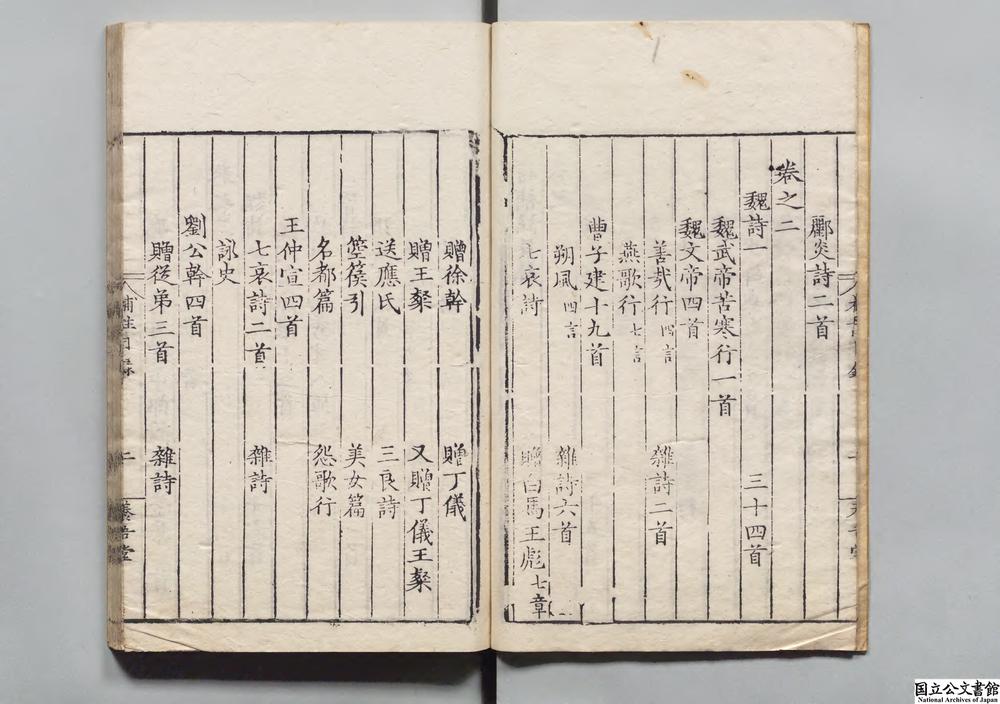 酈炎詩二首
卷之二
魏詩一 三十四首
魏武帝苦寒行一首
魏文帝四首
善哉行四言 雜詩二首
燕歌行七言
曹子建十九首
朔風四言 雜詩六首
七哀詩 贈白馬王彪七章
贈徐幹 贈丁儀
贈王粲 又贈丁儀王粲
送應氏 三良詩
箜篌引 美女篇
名都篇 怨歌行
王仲宣四首
七哀詩二首 雜詩
詠史
劉公幹四首
贈從弟三首 雜詩
補註目錄 二 養吾堂
国立公文書館
National Archives of Japan